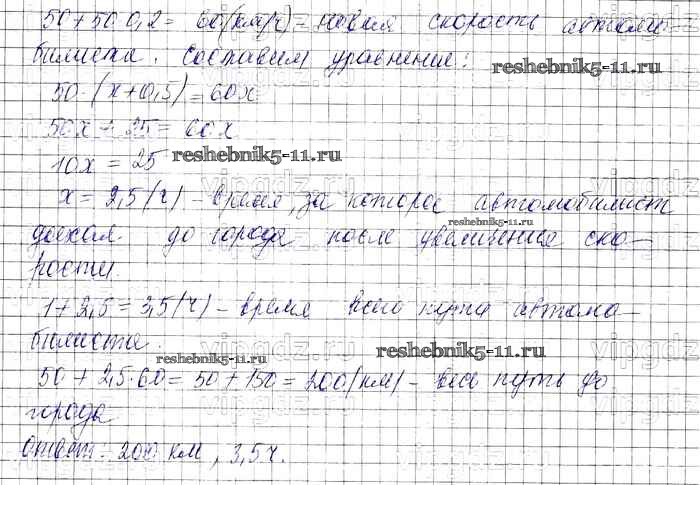 50+50·0,2= 60(км/ч) – новая скорость автомо-
билиста. Составим уравнение:
reshebnik5-11.ru
50·(х+0,5)=60х
50х+25=60х
10х = 25
reshebnik5-11.ru
vipgdz.ru
х = 2,5(ч) – время, за которое автомобилист
reshebnik5-11.ru
доехал до города после увеличения ско-
рости.
1+2,5=3,5(ч) – время всего пути автомо-
билиста.
vipgdz.ru
reshebnik5-11.ru
reshebnik5-11.ru
50+2,5·60=50+150=200(км) – весь путь до
города
Ответ: 200 км, 3,5ч.